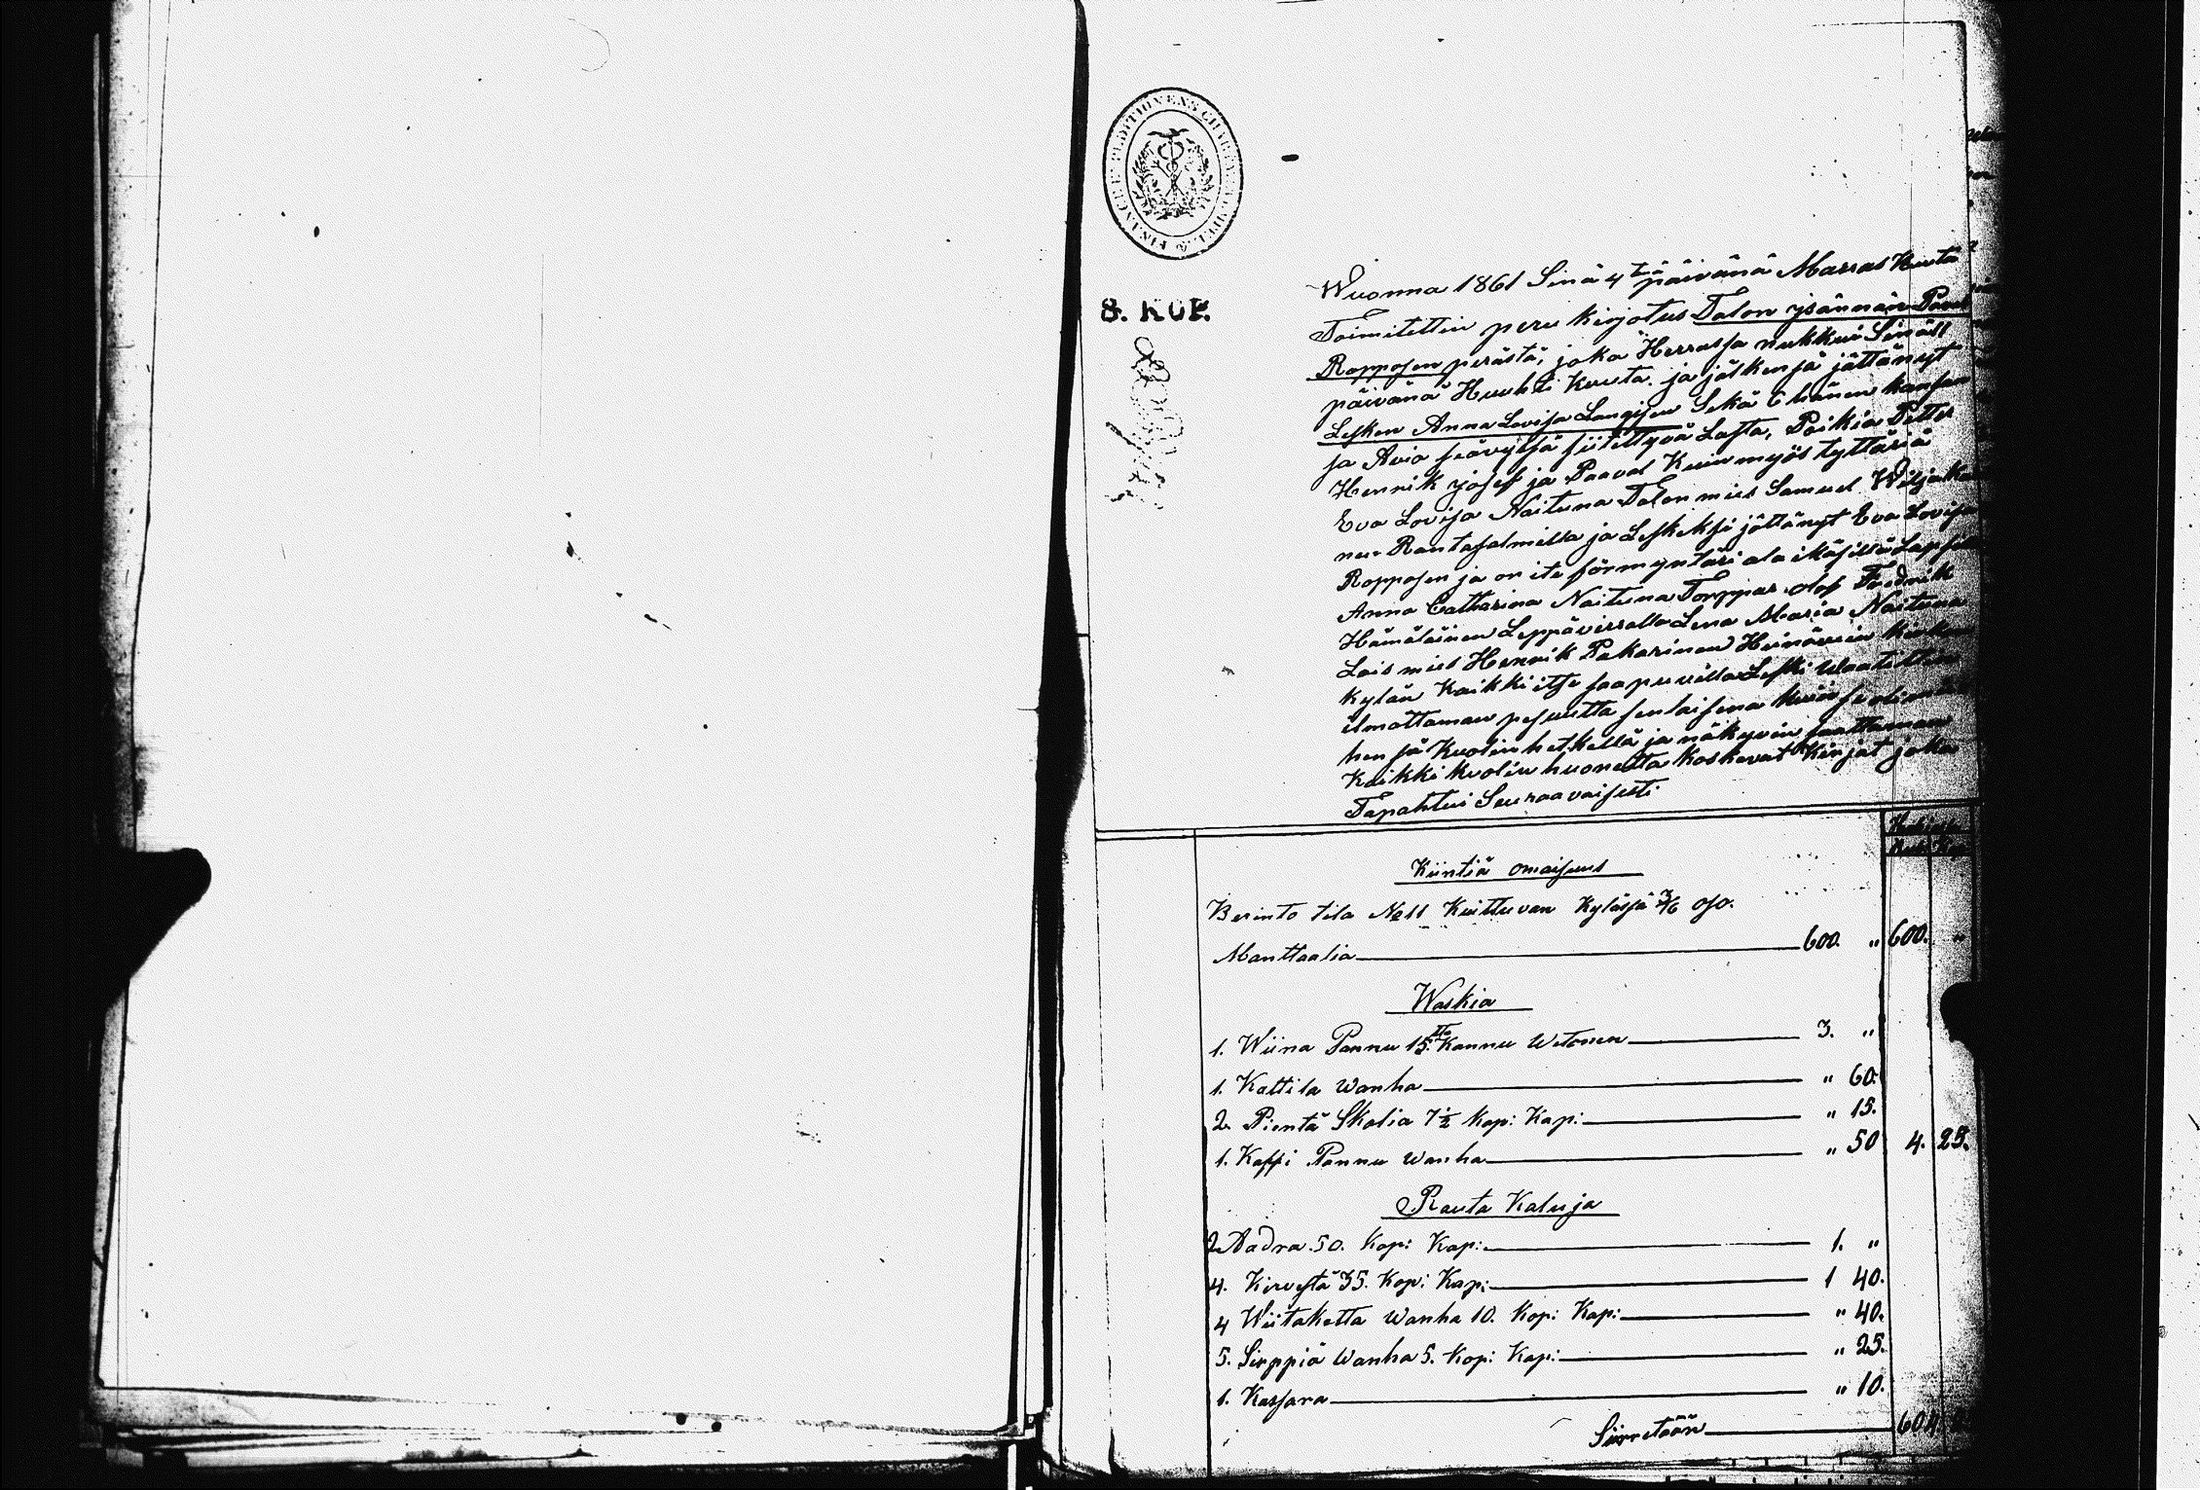 FINANCE EXPEDITIONENS CHARTÆ
8. KOP.
Wuonna 1861 Sinä 4tä päivänä Marras Kuuta
Toimitettin peru kirjotus Talon ysännän Paavo
Ropposen perästä, joka Herrassa nukkui Sinä 11
päivänä Huhti Kuuta. ja jälkensä jättänyt
Lesken Anna Lovisa Laugisen Sekä 6 hänen kansan
ja Avio siävysä siitettyvä Lasta, Poikia Petter
Henrik yosef ja Paaval Kuin myös tyttäriä
Eva Lovisa Naituna Talon mies Samuel
nen Rantasalmella ja Leskeksi jättänyt Eva Lovisa
Ropposen ja on ite förmyntäri ala ikäsillä Lapsilla
Anna Catharina Naituna Torppar Olof Fredrik
Hämäläinen Leppävirralla Lena Maria Naituna
Lois mies Henrik Pakarinen Heinävein
Kylän Kaikki itse saapuvilla Leski Waatittin
ilmottaman pesuutta senlaisena kuin se oli
hen sä Kuolin hetkellä ja näkyvin saattaman
Kaikki kuolin huonetta koskevat Kirjat joka
Tapahtui Seuraavaisesti
Kiintiä omaisuus
Perinto tila No 11 Kuittuvan Kylässä 3/16 osa.
Manttaalia 600. " 600. "
Waskia
1. Wiina Pannu 15tta Kannu Wetonen 3. "
1. Kattila Wanha " 60.
2. Pientä Skolia 7 1/2 Kop: Kap: " 15.
1. Kaffi Pannu Wanha " 50 4. 25.
Rauta Kaluja
2 Aadra 50. Kop: Kap: 1. "
4. Kirvestä 35. Kop: Kap: 1 40.
4 Wiitaketta Wanha 10. Kop: Kap: " 40.
5. Sirppiä Wanha 5. Kop: Kap: " 25.
1. Kassara " 10.
Siirretään 604.